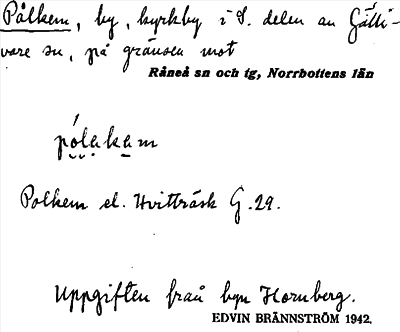 Pålkem, by, kyrkby i S. delen av Gälli-
vare sn, på gränsen mot
Råneå sn och tg, Norrbottens län
pólakam
Polkem el. Hvitträsk G. 29.
Uppgiften från byn Hornberg.
EDVIN BRÄNNSTRÖM 1942.